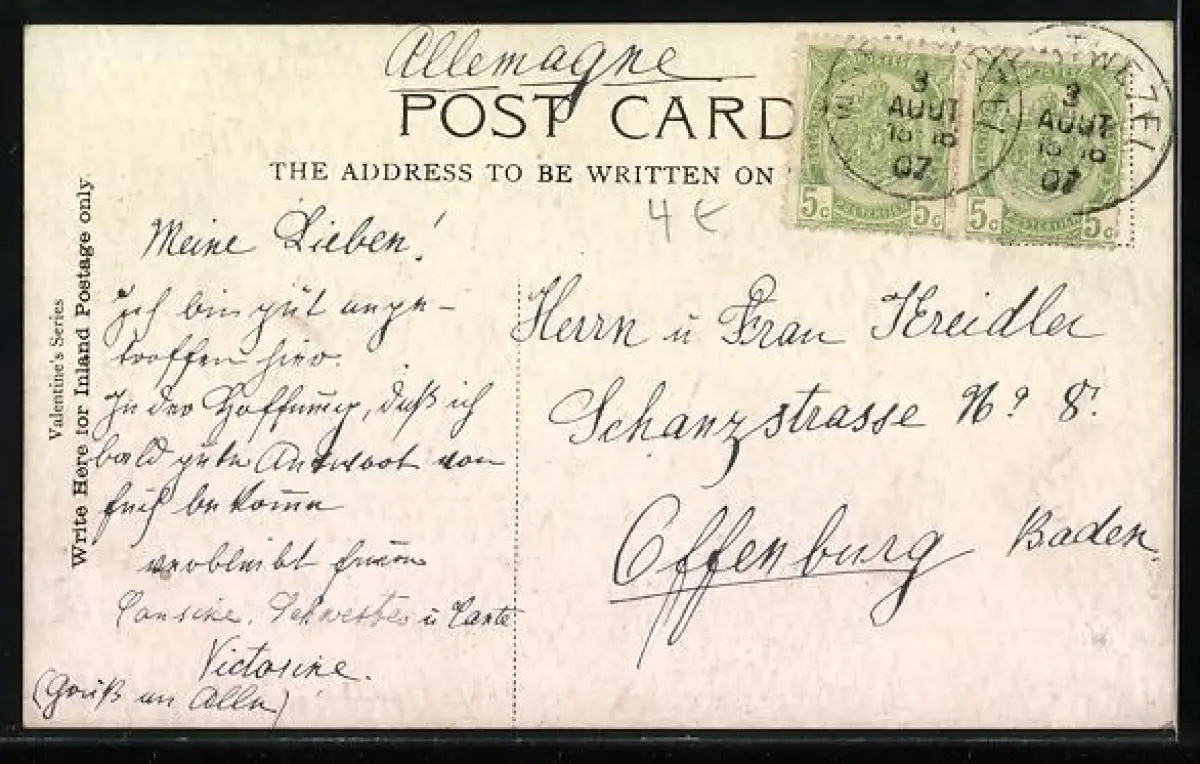 Allemagne
POST CARD
THE ADDRESS TO BE WRITTEN ON
4 €
5c 5c 5c 5c
3
AOUT
07
3
AOUT
07
Valentine's Series
Write Here for Inland Postage only.
Meine Lieben!
Ich bin gut ange-
troffen hier.
In der Hoffnung, daß ich
bald gute Antwort von
Euch bekome
verbleibt
Cousine, Schwester u Tante
Victorine.
(Gruß an Alle)
Herrn u Frau Kreidler
Schanzstrasse No 8.
Offenburg Baden.